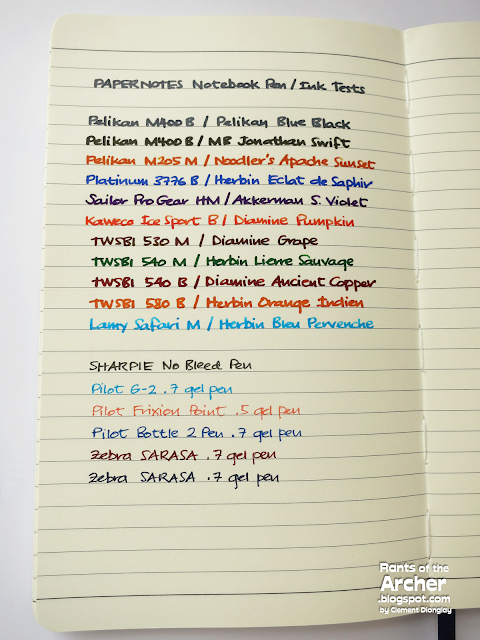 PAPERNOTES Notebook Pen / Ink Tests
Pelikan M400 B / Pelikan Blue Black
Pelikan M400 B / MB Jonathan Swift
Pelikan M205 M / Noodler's Apache Sunset
Platinum 3776 B / Herbin Eclat de Saphir
Sailor Pro Gear HM / Akkerman S. Violet
Kaweco Ice Sport B / Diamine Pumpkin
TWSBI 530 M / Diamine Grape
TWSBI 540 M / Herbin Lierre Sauvage
TWSBI 540 B / Diamine Ancient Copper
TWSBI 580 B / Herbin Orange Indien
Lamy Safari M / Herbin Bleu Pervenche
SHARPIE No Bleed Pen
Pilot G-2 .7 gel pen
Pilot Frixion Point .5 gel pen
Pilot Bottle 2 Pen .7 gel pen
Zebra SARASA .7 gel pen
Zebra SARASA .7 gel pen
Rants of the
Archer
.blogspot.com
by Clement Dionglay